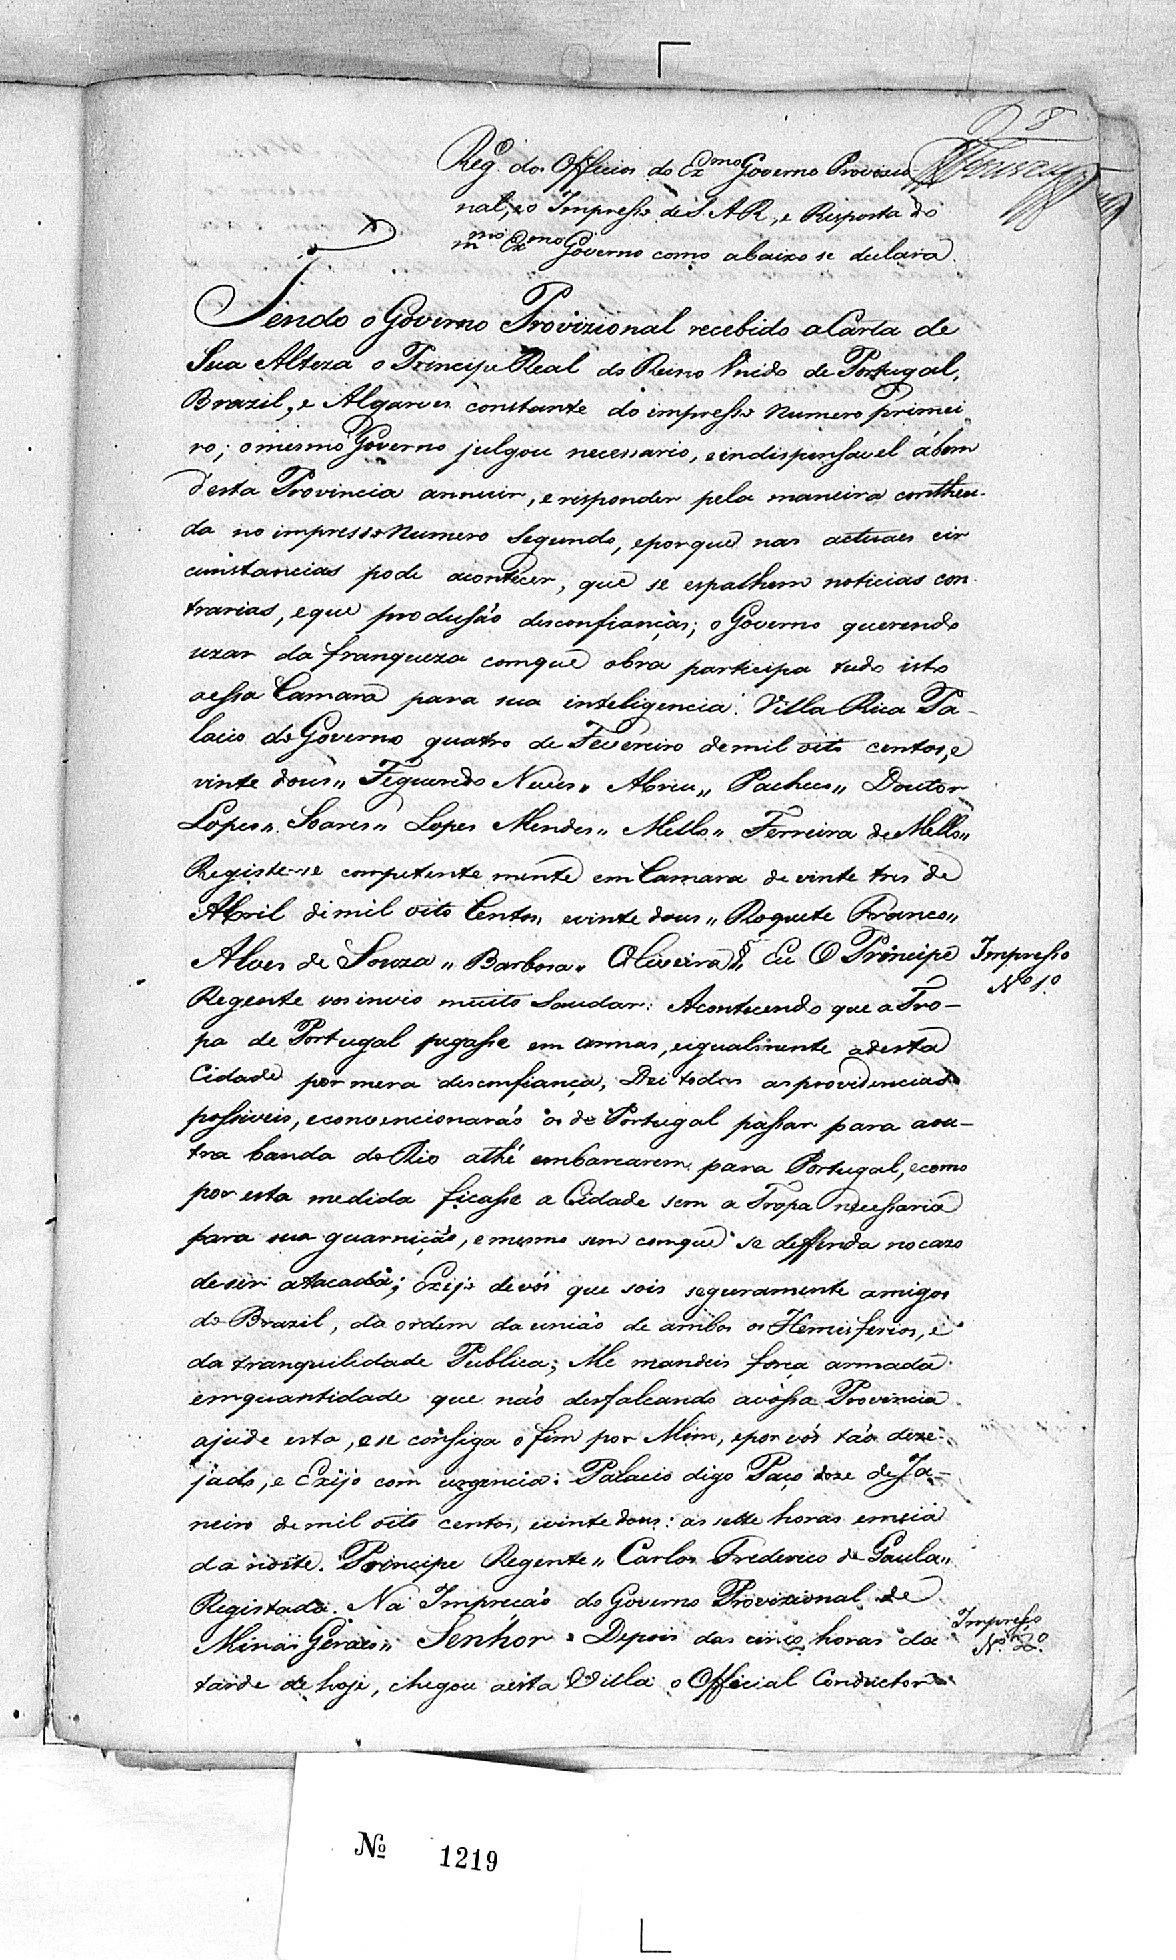 8
Reg.º dos Officios do Ex.mo Governo Provizio
nal, e o Impresso de S. A. R., e Resposta do
m.mo Ex.mo Governo como abaixo se declara.
Sendo o Governo Provizional recebido a Carta de
Sua Alteza o Principe Real do Reino Unido de Portugal,
Brazil, e Algarves constante do impresso numero primei
ro; o mesmo Governo julgou necessario, e indispensavel á bem
d'esta Provincia annuir, e responder pela maneira contheu-
da no impresso numero segundo, e porque nas actuaes cir
cunstancias pode acontecer, que se espalhem noticias con
trarias, e que produsão desconfianças; o Governo querendo
uzar da franqueza com que obra participa tudo isto
a essa Camara para sua inteligencia. Villa Rica Pa-
lacio do Governo quatro de Fevereiro de mil oito centos, e
vinte dous,, Figueredo Neves,, Abreu,, Pacheco,, Doutor
Lopes,, Soares,, Lopes Mendes,, Mello,, Ferreira de Mello,,
Registe-se competente mente em Camara de vinte tres de
Abril de mil oito Centos, e vinte dous,, Roquete Franco,,
Alves de Souza,, Barbosa,, Oliveira,, Eu O Principe
Impresso
Nº 1º
Regente vos invio muito Saudar: Acontecendo que a Tro-
pa de Portugal pegasse em armas, e igualmente a desta
Cidade por mera desconfiança, Dei todas as providencias
possiveis, e convencionarão os de Portugal passar para a ou-
tra banda do Rio athé embarcarem para Portugal, e como
por esta medida ficasse a Cidade sem a Tropa necessaria
para sua guarnição, e mesmo sem com que se deffenda no cazo
de ser atacada; Exijo de vós que sois seguramente amigos
do Brazil, da ordem da união de ambos os Hemisferios, e
da tranquilidade Publica; Me mandeis força armada
em quantidade que não desfalcando a vossa Provincia
ajude esta, e se consiga o fim por Mim, e por vós tão deze-
jado, e Exijo com urgencia: Palacio digo Paço doze de Ja-
neiro de mil oito centos, e vinte dous: as sette horas e meia
da noite. Principe Regente,, Carlos Frederico de Paula,,
Registada. Na Impreção do Governo Provizional de
Minas Geraes,, Senhor = Depois das cinco horas da
Impresso
Nº 2º
tarde de hoje, chegou a esta Villa o Official Conductor
Nº 1219